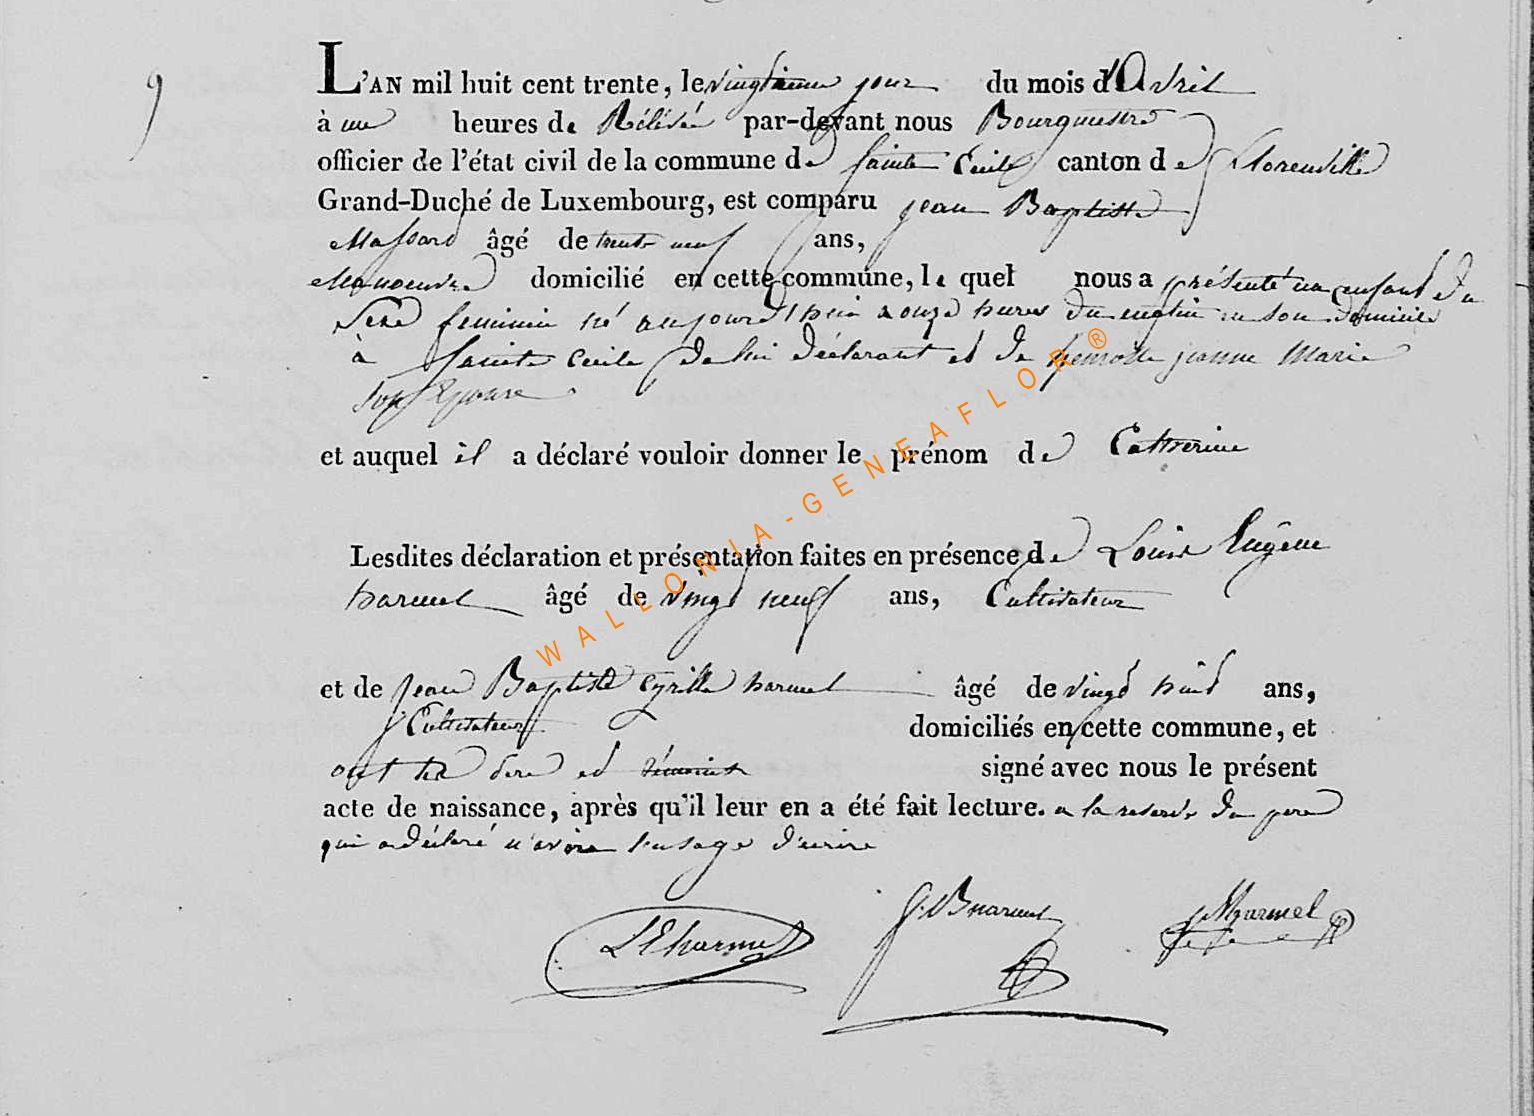 9
L'AN mil huit cent trente, le vingtieme jour du mois d'Avril
à une heures de Rélévée par-devant nous Bourguestre
officier de l'état civil de la commune de Sainte Cécile canton de Florenville
Grand-Duché de Luxembourg, est comparu jean Baptiste
Massard âgé de trente neuf ans,
Manoeuvre domicilié en cette commune, le quel nous a présenté un enfant du
Sexe feminin né aujourd'hui a onze heures du matin en son domicile
à Sainte Cecile de lui déclarant et de henrotte jeanne Marie
son Epouse
et auquel il a déclaré vouloir donner le prénom de Catherine
Lesdites déclaration et présentation faites en présence de Louis Eugêne
harmel âgé de vingt neuf ans, Cultivateur
et de jean Baptiste Cyrille harmel âgé de vingt huit ans,
Cultivateur domiciliés en cette commune, et
ont les dere et témoins signé avec nous le présent
acte de naissance, après qu'il leur en a été fait lecture. a la reserve du pere
qui a déclaré n'avoir l'usage d'ecrire
LEharmel J.Bharmel Harmel
WALLONIA-GENEAFLOR®